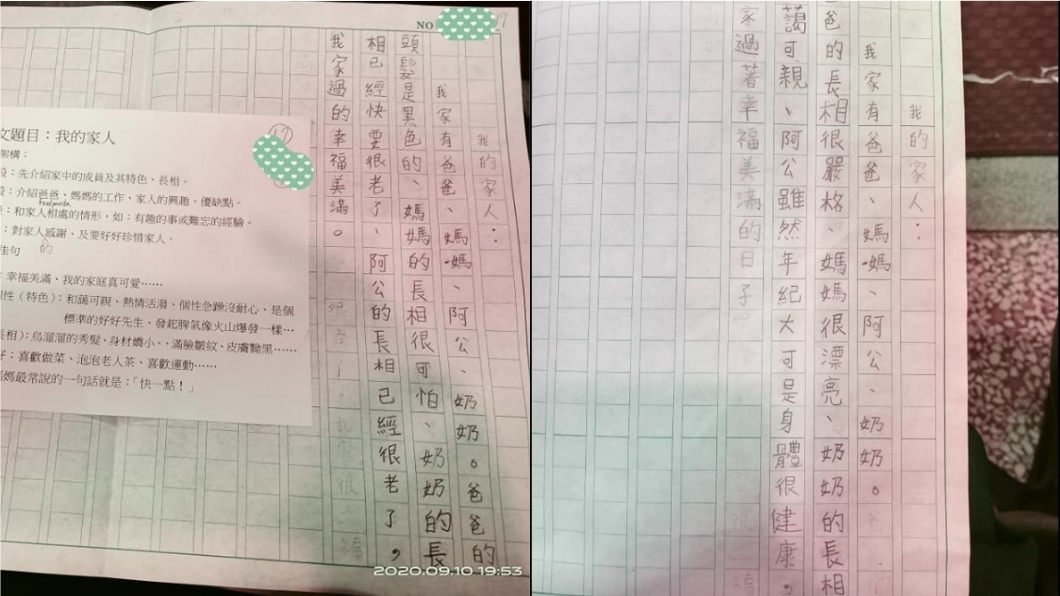 NO
我的家人：
我家有爸爸、媽媽、阿公、奶奶。爸爸的
頭髮是黑色的、媽媽的長相很可怕、奶奶的長
相已經快要很老了、阿公的長相已經很老了，
我家過的幸福美滿。
文題目：我的家人
架構：
段：先介紹家中的成員及其特色、長相。
段：介紹爸爸、媽媽的工作、家人的興趣、優缺點。
：和家人相處的情形，如：有趣的事或難忘的經驗。
：對家人感謝，及要好好珍惜家人。
的
佳句
：幸福美滿、我的家庭真可愛……
性（特色）：和藹可親、熱情活潑、個性急躁沒耐心、是個
標準的好好先生、發起脾氣像火山爆發一樣…
長相）：烏溜溜的秀髮、身材嬌小、滿臉皺紋、皮膚黝黑……
好：喜歡做菜、泡泡老人茶、喜歡運動……
媽最常說的一句話就是：「快一點！」
2020.09.10 19:53
我的家人：
我家有爸爸、媽媽、阿公、奶奶。
爸的長相很嚴格、媽媽很漂亮、奶奶的長相
藹可親、阿公雖然年紀大可是身體很健康，
家過著幸福美滿的日子